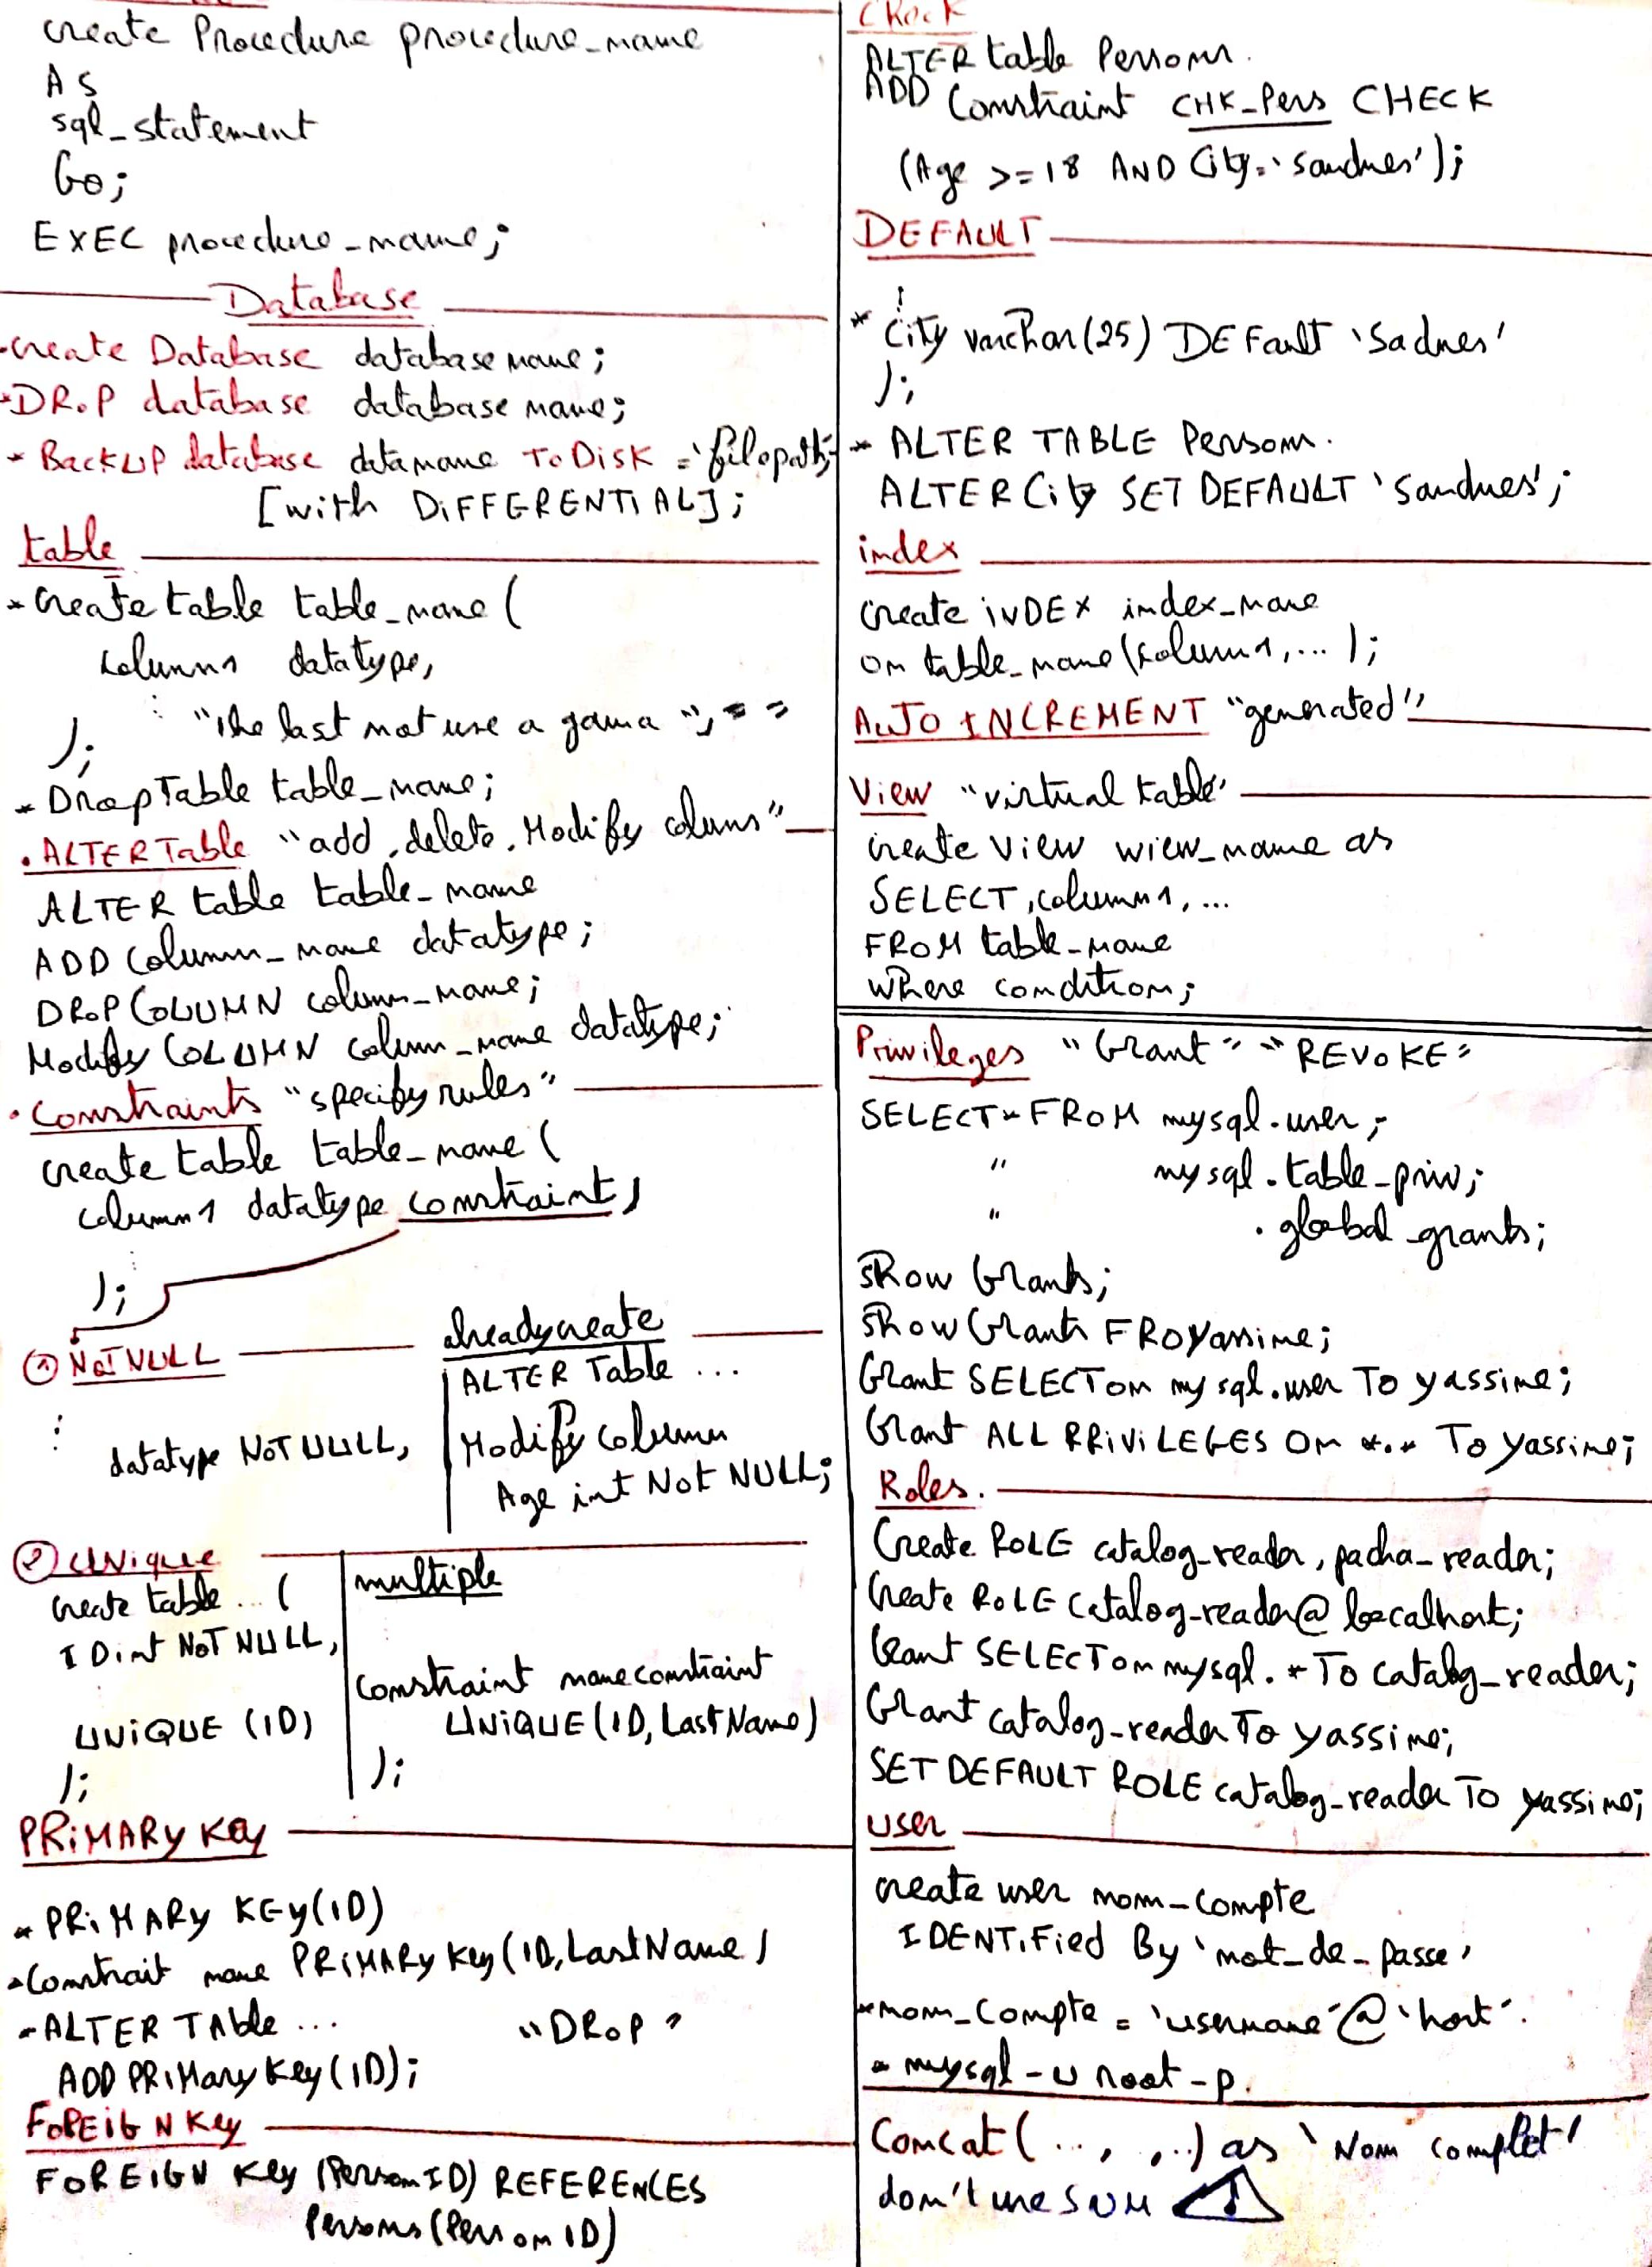 create Procedure procedure_name
AS
sql_statement
Go;
EXEC procedure_name;
Database
create Database databasename;
* DROP database databasename;
* BackUP database dataname To DISK = 'filepath'
[with DIFFERENTIAL];
table
* create table table_name (
column1 datatype,
⋮ "the last not use a
);
* Drop Table table_name;
. ALTER Table "add, delete, Modify colums"
ALTER table table_name
ADD column_name datatype;
DROP COLUMN column_name;
Modify COLUMN column_name datatype;
. Constraints "specify rules"
create table table_name (
column1 datatype constraint,
⋮
);
① NOT NULL
⋮
datatype NOT NULL,
already create
ALTER Table ...
Modify column
Age int Not NULL;
② UNique
create table ... (
ID int NOT NULL,
UNIQUE (ID)
);
multiple
constraint nameconstraint
UNIQUE (ID, LastName)
);
PRIMARY Key
* PRIMARY KEY(ID)
* Constrait name PRIMARY Key (ID, LastName)
- ALTER TAble ... "DROP"
ADD PRIMary Key (ID);
FOREIGN Key
FOREIGN Key (PersonID) REFERENCES
Persons (PersonID)
Check
ALTER table Persons.
ADD Constraint CHK_Pers CHECK
(Age >= 18 AND City = 'sandnes');
DEFAULT
⋮
* City varchar(25) DEFault 'Sadnes'
);
* ALTER TABLE Persons.
ALTER City SET DEFAULT 'sandnes';
index
create iNDEX index_name
on table_name (column1, ... );
AUTO INCREMENT "generated"
View "virtual table"
create View wiew_name as
SELECT, column1, ...
FROM table_name
where condition;
Privileges "Grant" "REVOKE"
SELECT * FROM mysql.user;
" mysql.table_priv;
" .global_grants;
show Grants;
show Grants FRO yassine;
Grant SELECT on mysql.user To yassine;
Grant ALL PRIVILEGES On *.* To yassine;
Roles.
Create ROLE catalog_reader, pacha_reader;
Create ROLE catalog_reader@localhost;
Grant SELECT on mysql.* To catalog_reader;
Grant catalog_reader To yassine;
SET DEFAULT ROLE catalog_reader To yassine;
user
create user nom_compte
IDENTIFied By 'mot_de_passe'
* nom_compte = 'username'@'host'.
* mysql -u root -p.
Concat (..., , ..) as 'Nom complet'
don't use SUM